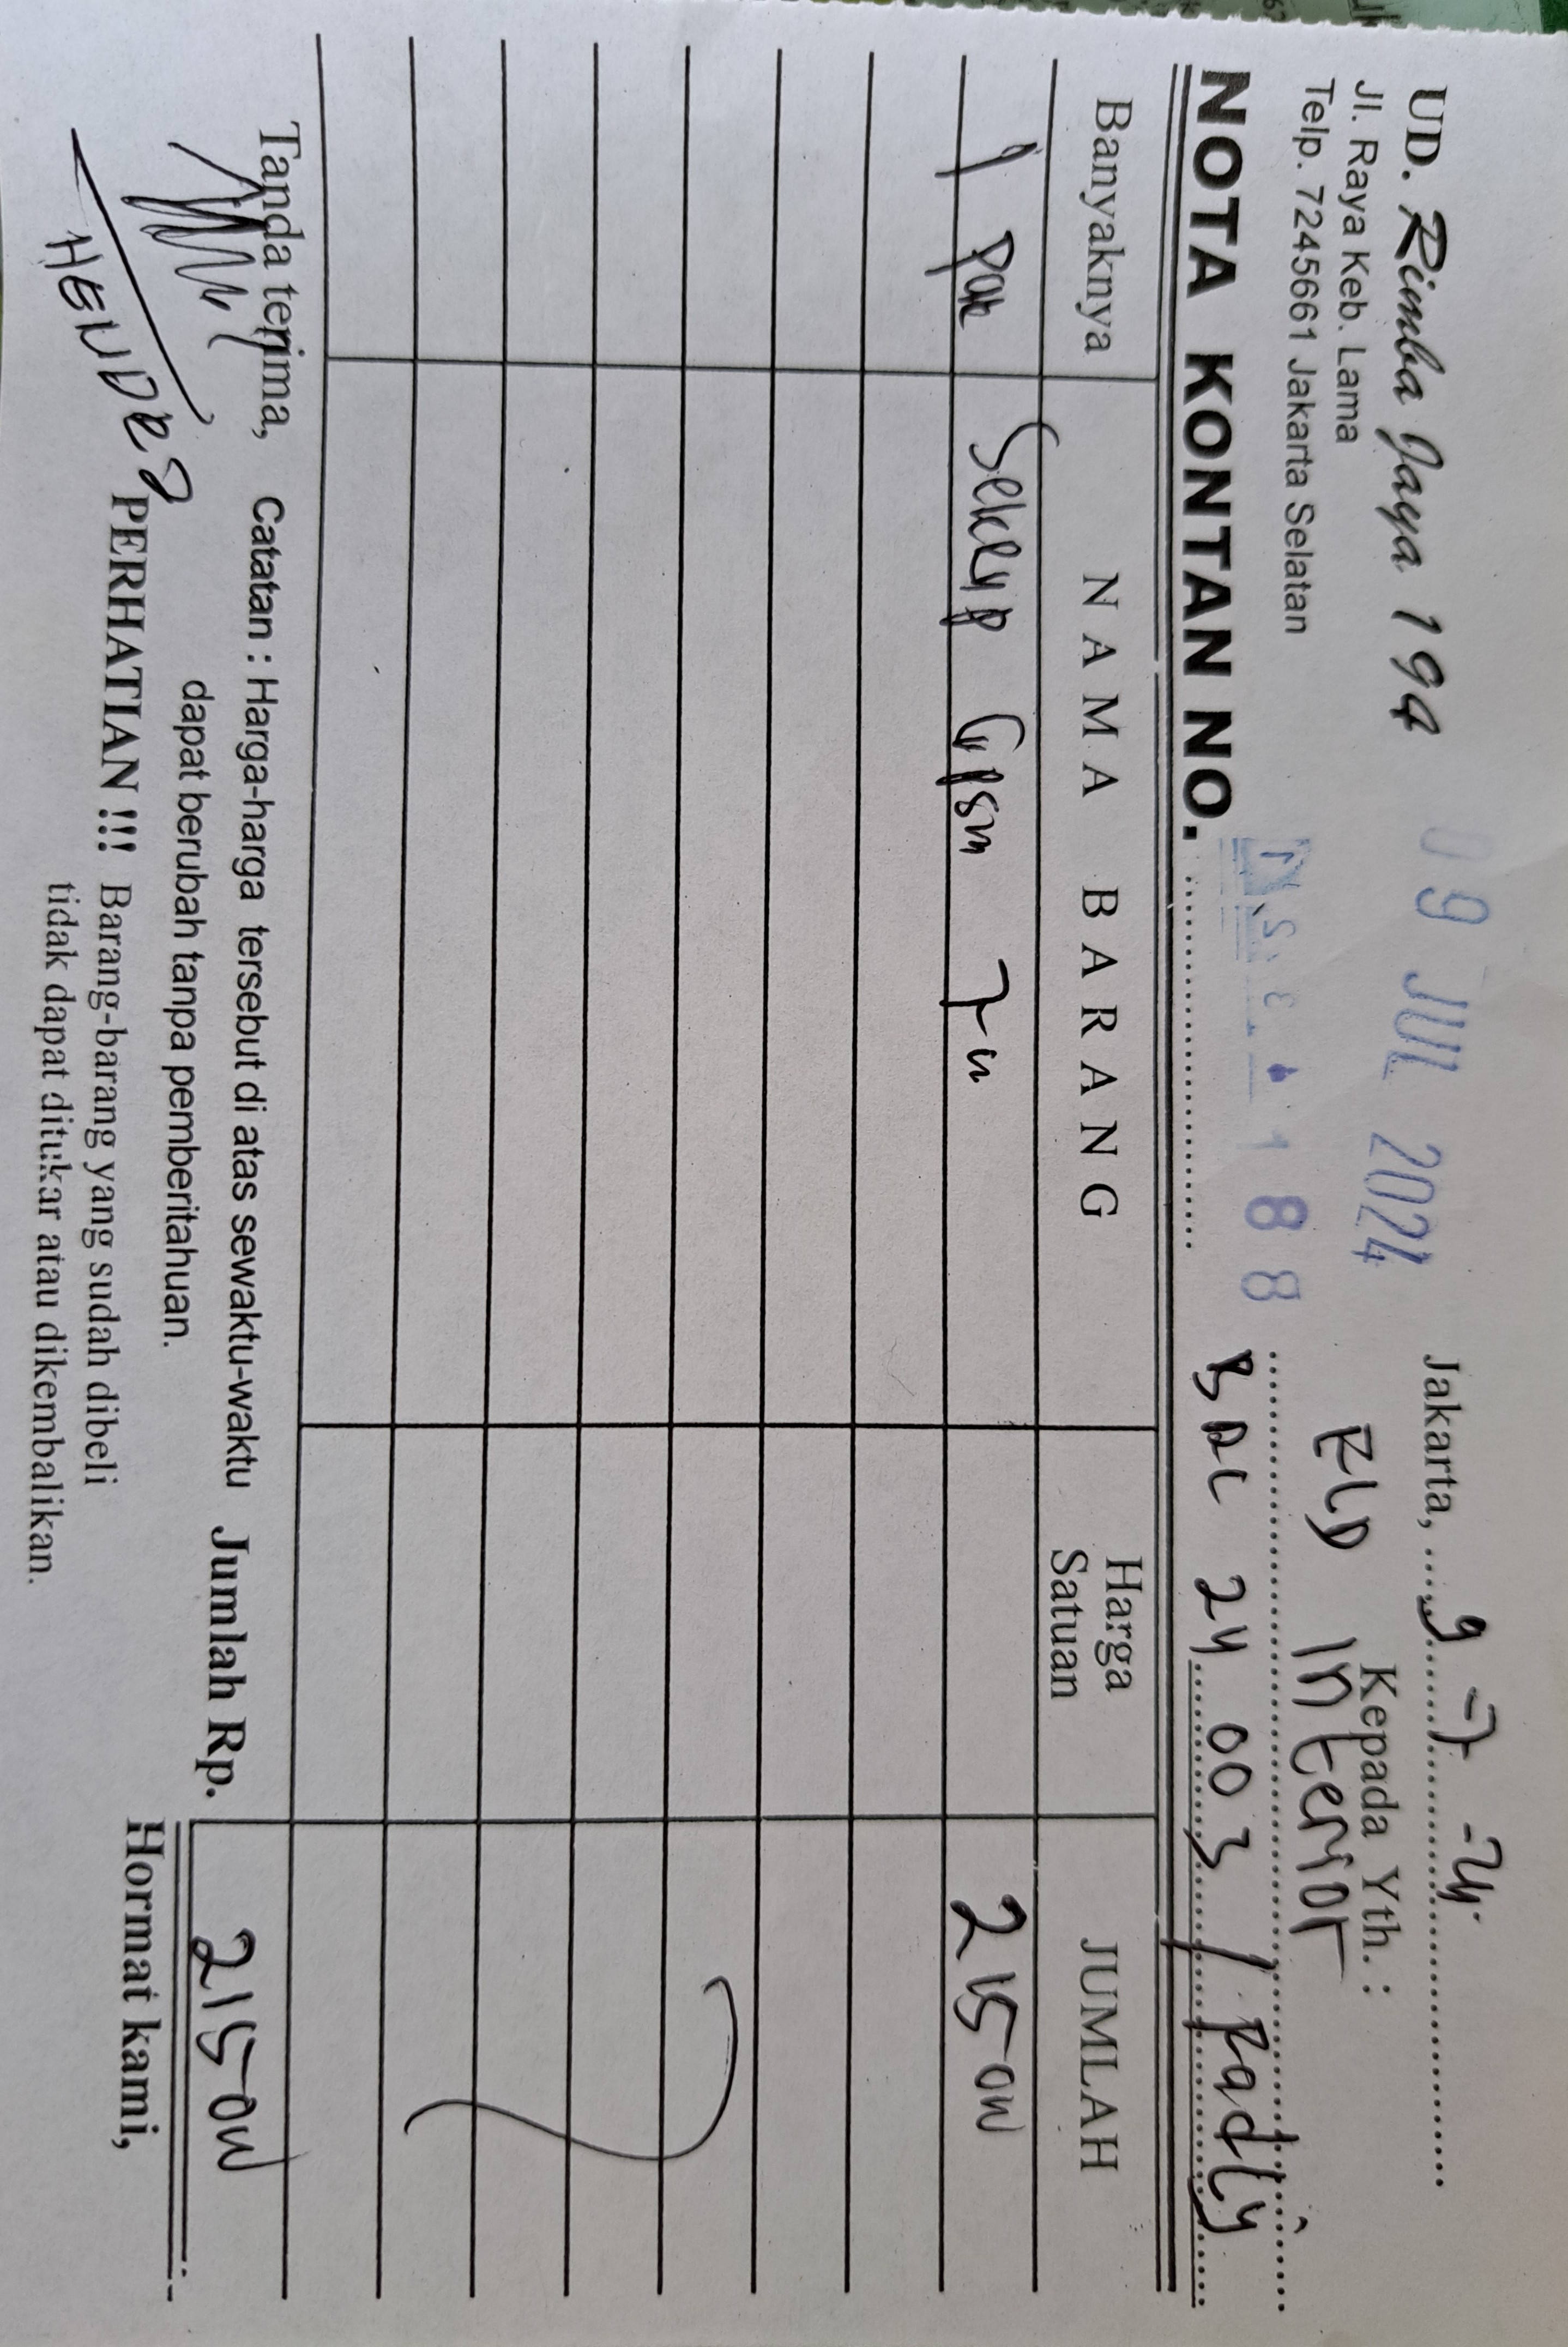 UD. Rimba Jaya 194
Jl. Raya Keb. Lama
Telp. 7245661 Jakarta Selatan
09 JUL 2024
Jakarta, 9 -7 -24
Kepada Yth. :
RLD Interior
NOTA KONTAN NO. 188
BDC 24 003 / Padly
Banyaknya NAMA BARANG Harga Satuan JUMLAH
1 pak Sekrup Gpsm 21500
Tanda terima,
HENDRA
Catatan : Harga-harga tersebut di atas sewaktu-waktu
dapat berubah tanpa pemberitahuan.
Jumlah Rp. 21500
PERHATIAN !!! Barang-barang yang sudah dibeli
tidak dapat ditukar atau dikembalikan.
Hormat kami,